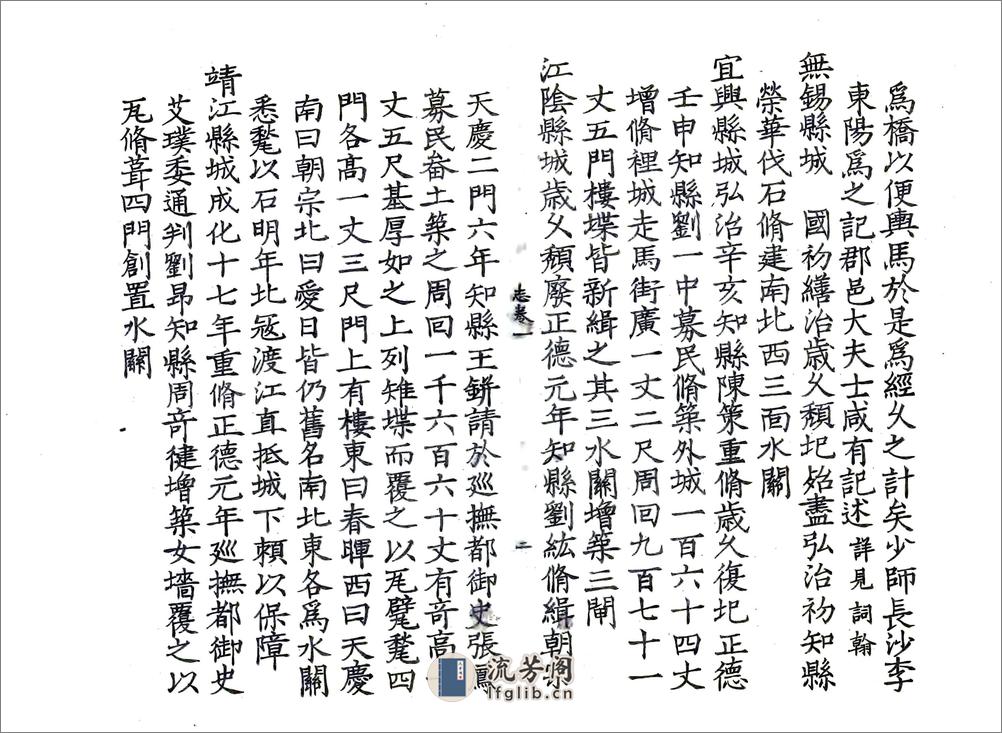 爲橋以便輿馬於是爲經久之計矣少師長沙李
東陽爲之記郡邑大夫士咸有記述詳見詞翰
無錫縣城　國初繕治歲久頹圮殆盡弘治初知縣
榮華伐石脩建南北西三面水關
宜興縣城弘治辛亥知縣陳策重脩歲久復圮正德
壬申知縣劉一中募民脩築外城一百六十四丈
增脩裡城走馬街廣一丈二尺周回九百七十一
丈五門樓堞皆新緝之其三水關增築三閘
江陰縣城歲久頹廢正德元年知縣劉紘脩緝朝宗
志卷一
二
天慶二門六年知縣王鉼請於廵撫都御史張鳳
募民畚土築之周回一千六百六十丈有竒高一
丈五尺基厚如之上列雉堞而覆之以瓦甓甃四
門各高一丈三尺門上有樓東曰春暉西曰天慶
南曰朝宗北曰愛日皆仍舊名南北東各爲水關
悉甃以石明年北冦渡江直抵城下頼以保障
靖江縣城成化十七年重脩正德元年廵撫都御史
艾璞委通判劉昂知縣周竒健增築女墻覆之以
瓦脩葺四門創置水關
流芳阁
lfglib.cn